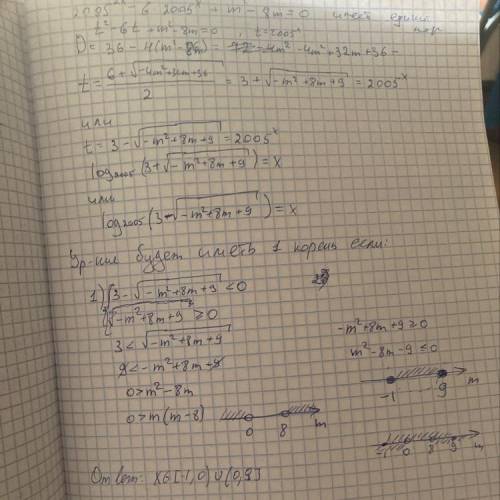 2005^2x - 6·2005^x + m² - 8m = 0 имеет един
t² - 6t + m² - 8m = 0, t = 2005^x
D = 36 - 4(m² - 8m) = -4m² + 32m + 36 -
t = (6 + √(-4m² + 32m + 36)) / 2 = 3 + √(-m² + 8m + 9) = 2005^x
или
t = 3 - √(-m² + 8m + 9) = 2005^x
log₂₀₀₅(3 + √(-m² + 8m + 9)) = x
или
log₂₀₀₅(3 - √(-m² + 8m + 9)) = x
Ур-ние будет иметь 1 корень если:
1) { 3 - √(-m² + 8m + 9) < 0
√(-m² + 8m + 9) ≥ 0
3 < √(-m² + 8m + 9)
9 < -m² + 8m + 9
0 > m² - 8m
0 > m(m - 8)
0 8 m
-m² + 8m + 9 ≥ 0
m² - 8m - 9 ≤ 0
-1 9 m
-1 0 8 9 m
Ответ: xϵ[-1,0) ∪ (0,9]